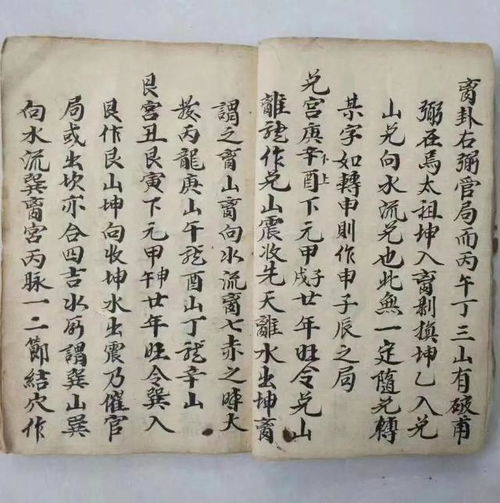 离卦右弼官局而丙午丁三山有破甫
弼在焉太祖坤入离剝換坤乙入兑
山兑向水流兑也此無一定随兑轉
某字如轉申則作申子辰之局
兑宮庚辛酉上下下元甲子戊廿年旺令兑山
離龍作兑山震收先天離水出坤离
謂之离山离向水流离七赤之時天
按丙龍庚山午龍酉山丁龍辛山
艮宮丑艮寅下元甲申午廿年旺令巽入
艮作艮山坤向收坤水出震乃催官
局或出坎亦合四吉水所謂巽山巽
向水流巽离宮丙脉一二節結穴作